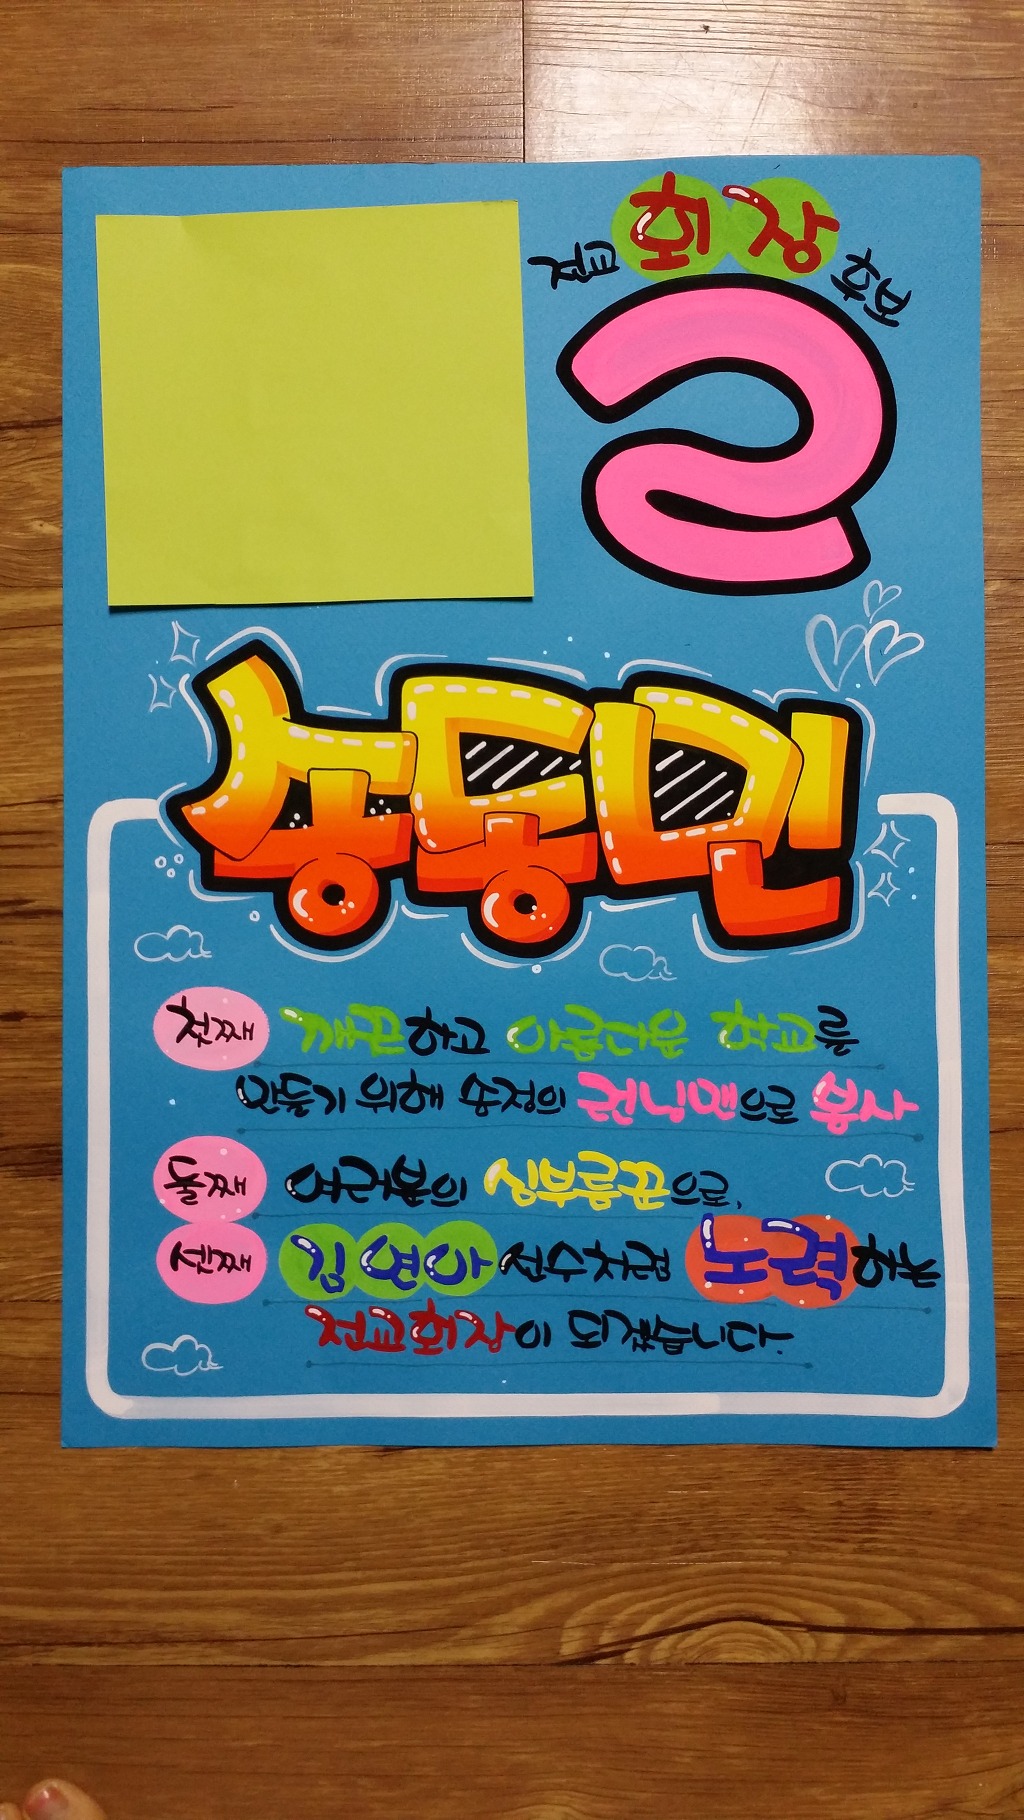 전교 회장 후보
2
송동민
첫째 깨끈하고 아름다운 학교를
만들기 위해 송정의 런닝맨으로 봉사
둘째 여러분의 심부름꾼으로,
셋째 김연아 선수처럼 노력하는
전교회장이 되겠습니다.